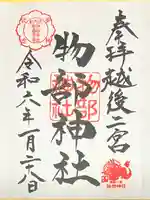 奉拝越後二宮
物部神社
物部神社
令和六年一月二八日